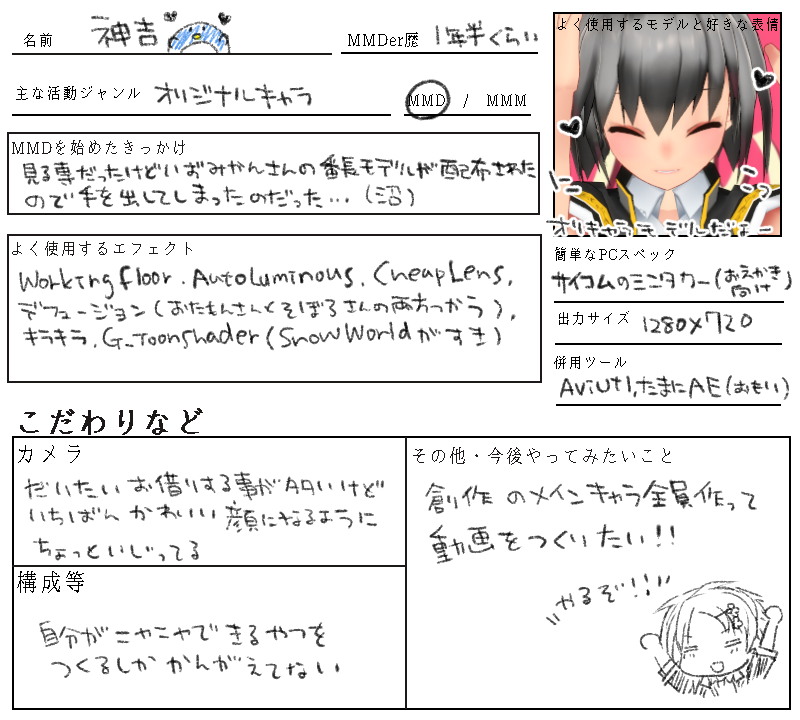 名前 神吉
MMDer歴 1年半くらい
主な活動ジャンル オリジナルキャラ
MMD / MMM
よく使用するモデルと好きな表情
にこっ
オリキャラモデルだよー
MMDを始めたきっかけ
見る専だったけどいおみかんさんの番長モデルが配布された
ので手を出してしまったのだった…(沼)
よく使用するエフェクト
WorkingFloor.AutoLuminous.CheapLens.
デフュージョン(おたもんさんとそぼろさんの両方つかう),
キラキラ.G_ToonShader(SnowWorldがすき)
簡単なPCスペック
サイコムのミニタワー(おえかき
向け)
出力サイズ 1280×720
併用ツール
AviUtl,たまにAE(おもい)
こだわりなど
カメラ
だいたいお借りする事が多いけど
いちばんかわいい顔になるように
ちょっといじってる
構成等
自分がニヤニヤできるやつを
つくるしかかんがえてない
その他・今後やってみたいこと
創作のメインキャラ全員作って
動画をつくりたい!!
やるぞ!!